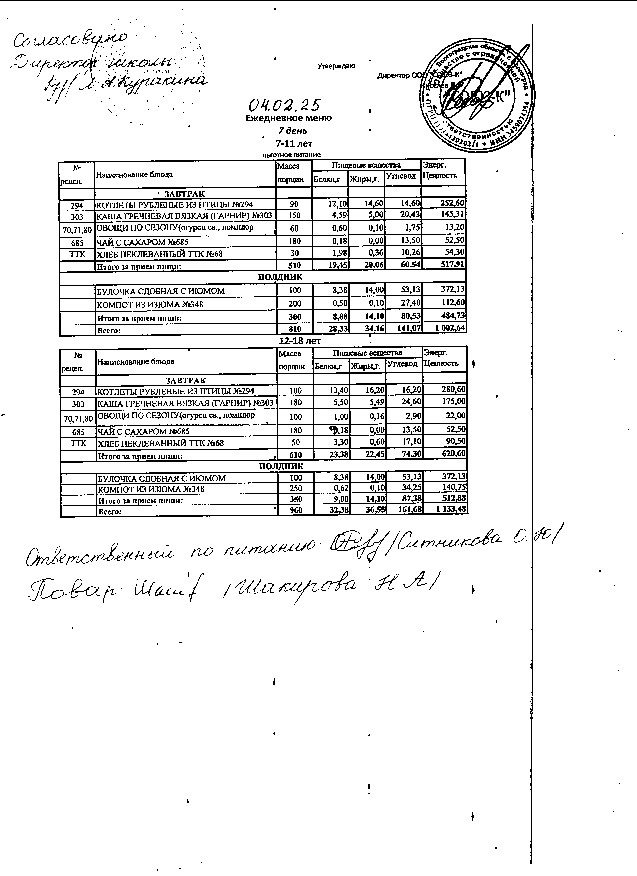 Согласовуно
Директор школы
Л.А.Куракина
Утверждаю
Директор ООО "СОЮЗ-К"
04.02.25
Ежедневное меню
7 день
7-11 лет
льготное питание
№ рецеп. Наименование блюда Масса порции Пищевые вещества Энерг. Ценность
Белки,г Жиры,г. Углевод
ЗАВТРАК
294 КОТЛЕТЫ РУБЛЕНЫЕ ИЗ ПТИЦЫ №294 90 12,10 14,60 14,60 252,60
303 КАША ГРЕЧНЕВАЯ ВЯЗКАЯ (ГАРНИР) №303 150 4,59 5,00 20,43 145,31
70,71,80 ОВОЩИ ПО СЕЗОНУ(огурец св., помидор 60 0,60 0,10 1,75 13,20
685 ЧАЙ С САХАРОМ №685 180 0,18 0,00 13,50 52,50
ТТК ХЛЕБ ПЕКЛЕВАННЫЙ ТТК №68 30 1,98 0,36 10,26 54,30
Итого за прием пищи: 510 19,45 20,06 60,54 517,91
ПОЛДНИК
БУЛОЧКА СДОБНАЯ С ИЮМОМ 100 8,38 14,00 53,13 372,13
КОМПОТ ИЗ ИЗЮМА №348 200 0,50 0,10 27,40 112,60
Итого за прием пищи: 300 8,88 14,10 80,53 484,73
Всего: 810 28,33 34,16 141,07 1 002,64
12-18 лет
№ рецеп. Наименование блюда Масса порции Пищевые вещества Энерг. Ценность
Белки,г Жиры,г. Углевод
ЗАВТРАК
294 КОТЛЕТЫ РУБЛЕНЫЕ ИЗ ПТИЦЫ №294 100 13,40 16,20 16,20 280,60
303 КАША ГРЕЧНЕВАЯ ВЯЗКАЯ (ГАРНИР) №303 180 5,50 5,49 24,60 175,00
70,71,80 ОВОЩИ ПО СЕЗОНУ(огурец св., помидор 100 1,00 0,16 2,90 22,00
685 ЧАЙ С САХАРОМ №685 180 0,18 0,00 13,50 52,50
ТТК ХЛЕБ ПЕКЛЕВАННЫЙ ТТК №68 50 3,30 0,60 17,10 90,50
Итого за прием пищи: 610 23,38 22,45 74,30 620,60
ПОЛДНИК
БУЛОЧКА СДОБНАЯ С ИЮМОМ 100 8,38 14,00 53,13 372,13
КОМПОТ ИЗ ИЗЮМА №348 250 0,62 0,10 34,25 140,75
Итого за прием пищи: 350 9,00 14,10 87,38 512,88
Всего: 960 32,38 36,55 161,68 1 133,48
Ответственный по питанию /Ситникова О.Ю/
Повар /Шакирова Н А/